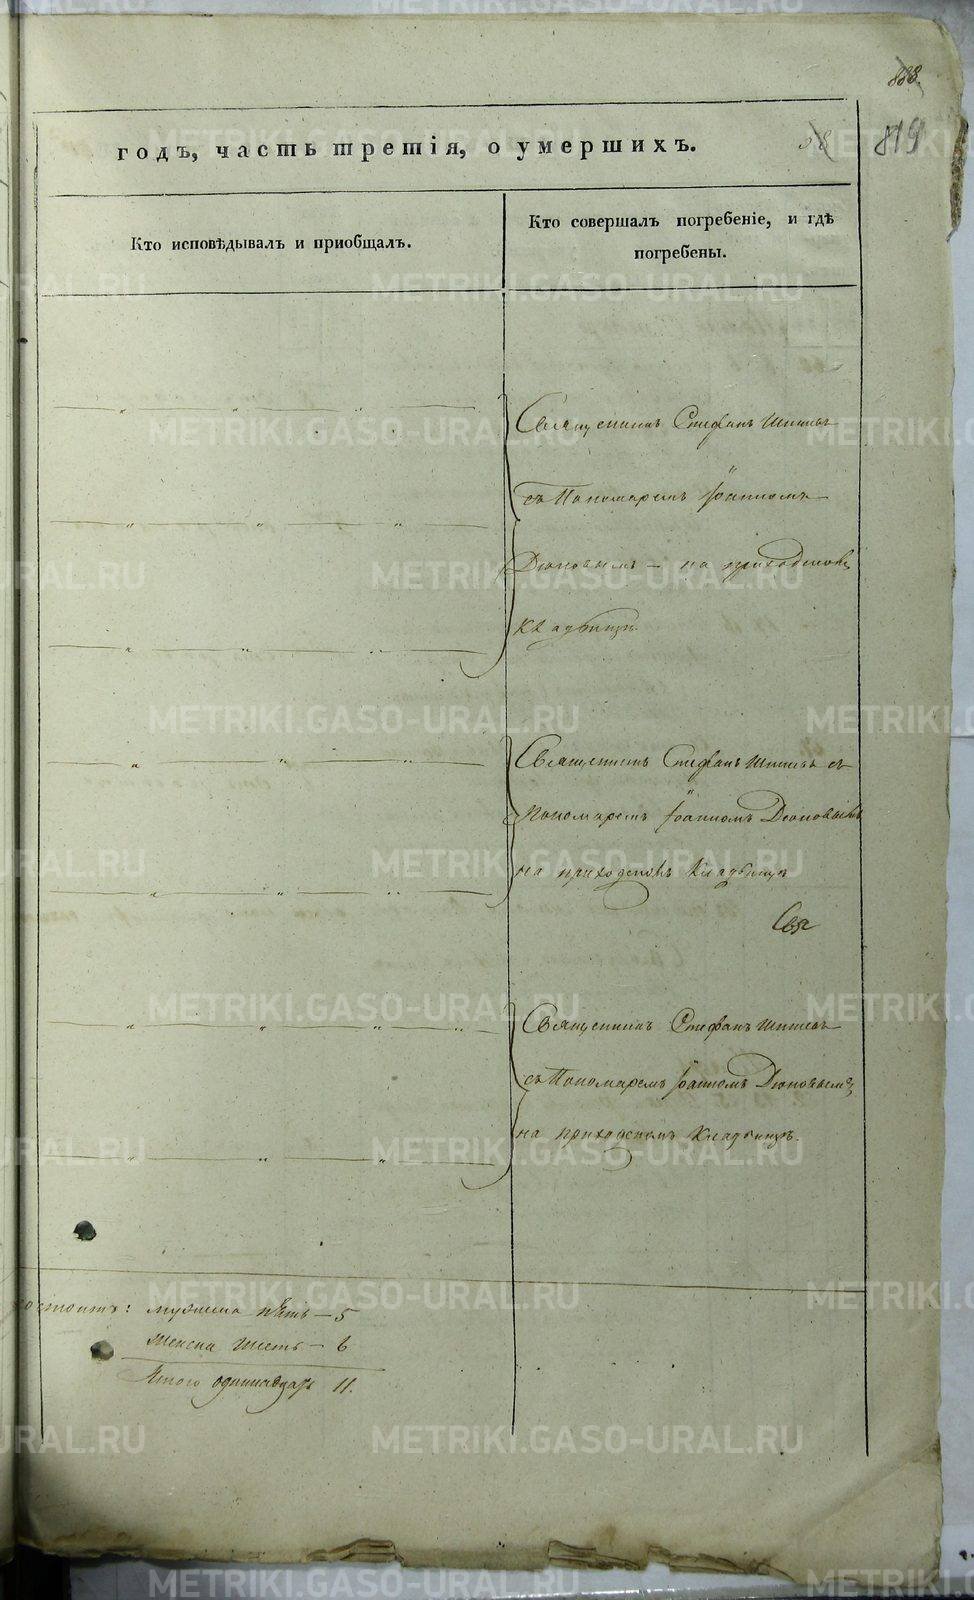 888.
58 819
годъ, часть третія, о умершихъ.
Кто исповѣдывалъ и приобщалъ.
Кто совершалъ погребеніе, и гдѣ
погребены.
Священникъ Стефанъ
съ Пономаремъ Іоанномъ
Дюковымъ — на приходскомъ
кладбищѣ.
Священникъ Стефанъ съ
Пономаремъ Іоанномъ Дюковымъ
на приходскомъ Кладбищѣ
Свя
Священникъ Стефанъ
съ Пономаремъ Іоанномъ Дюковымъ
на приходскомъ Кладбищѣ.
мужеска пять — 5
женска шесть — 6
Итого одинадцать 11.
METRIKI.GASO-URAL.RU